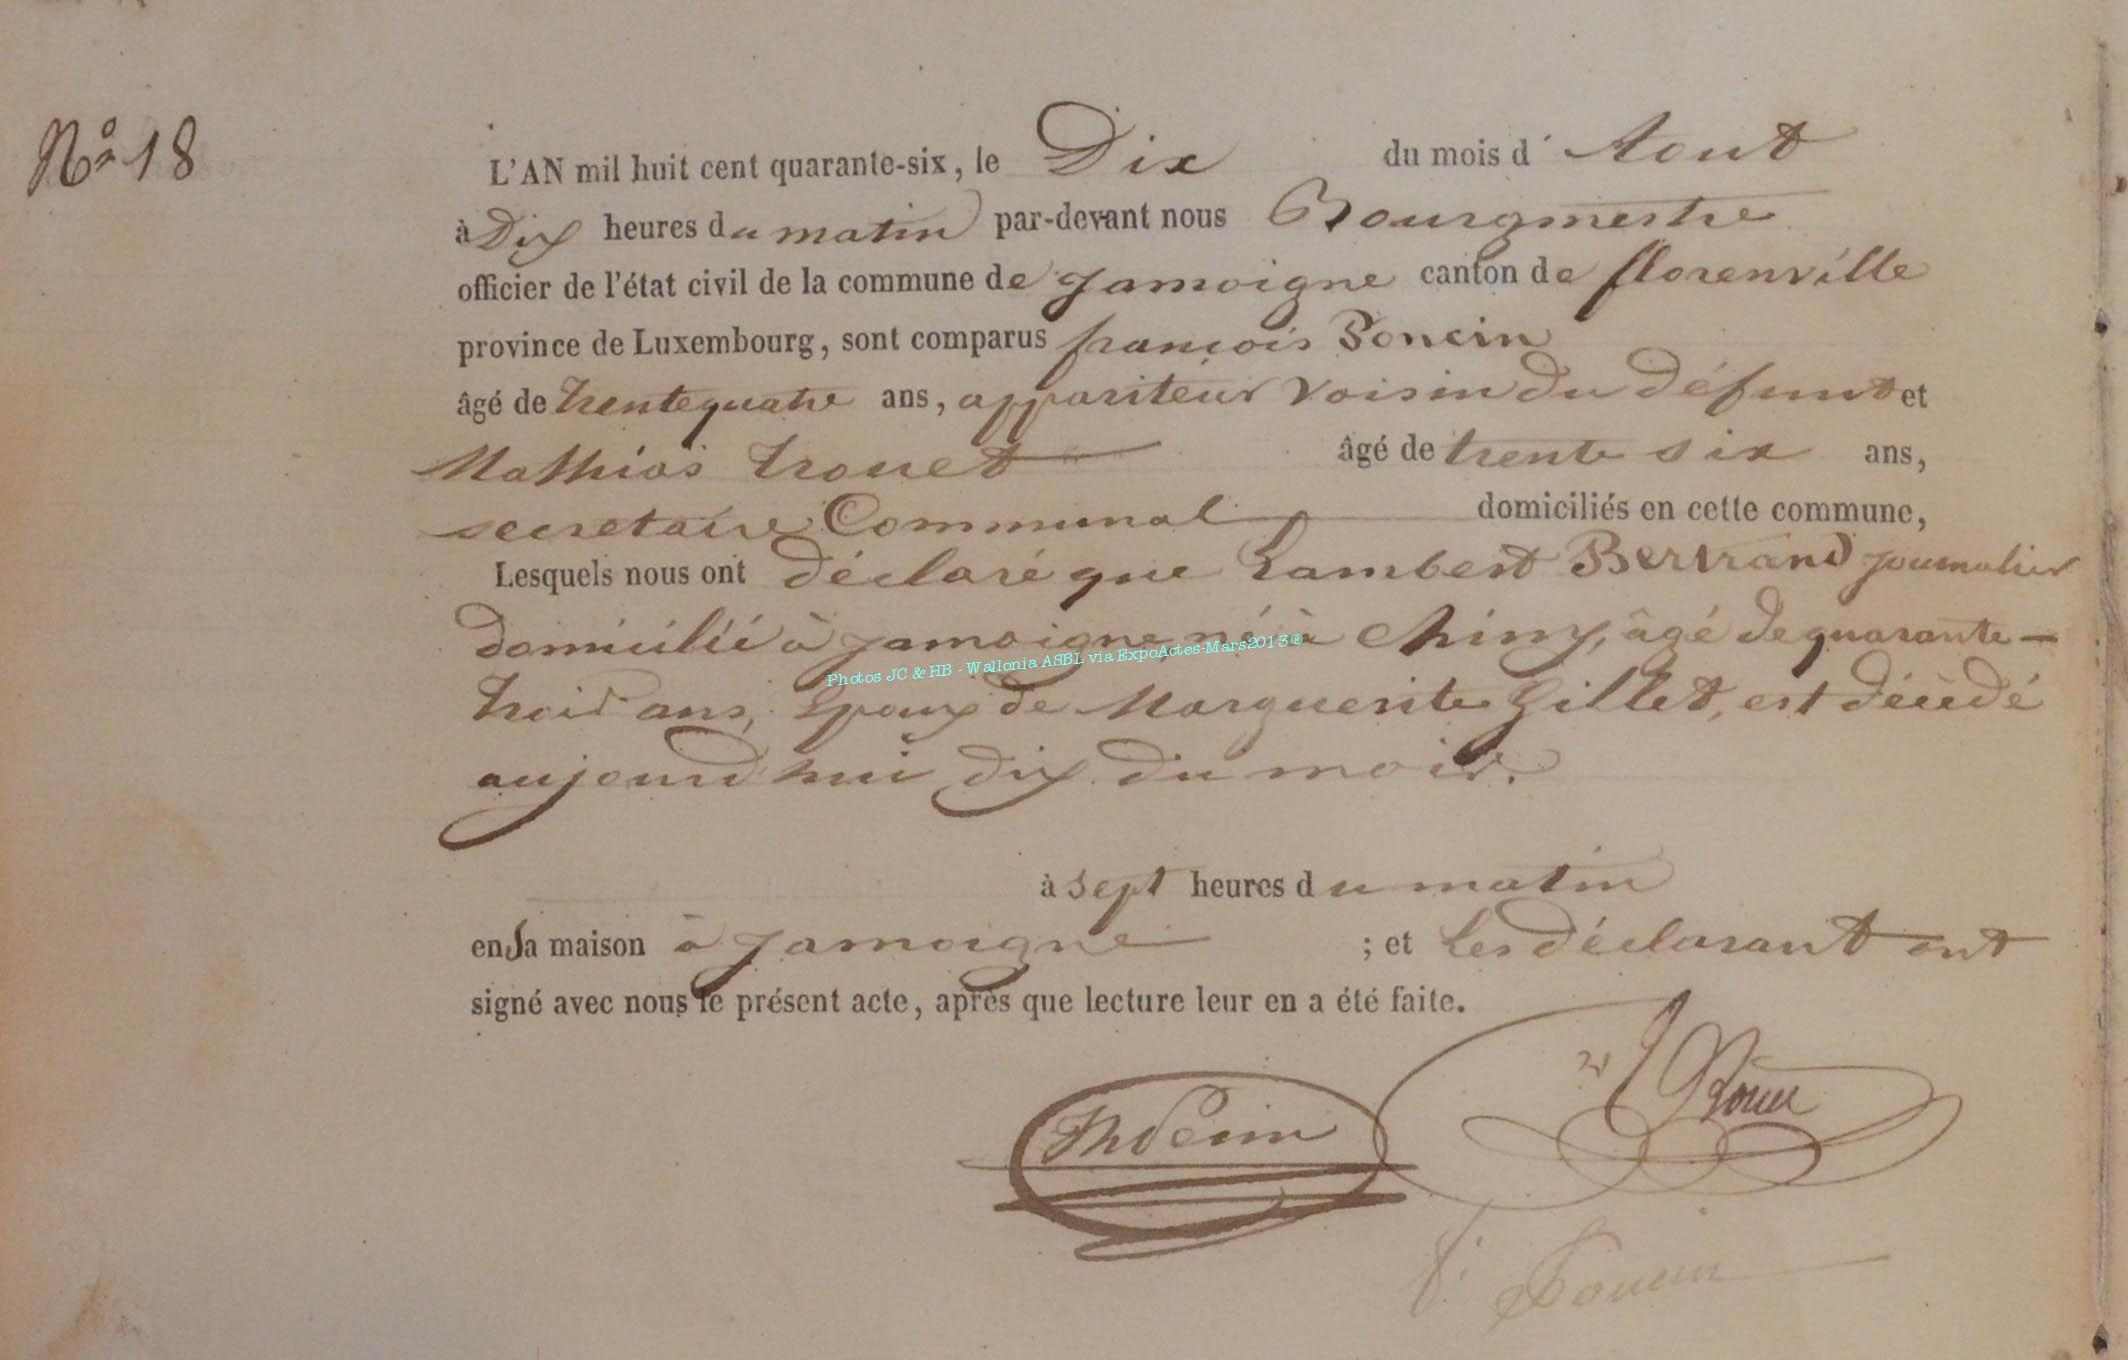 No 18
L'AN mil huit cent quarante-six, le Dix du mois d' Aout
à Dix heures du matin par-devant nous Bourgmestre
officier de l'état civil de la commune de Jamoigne canton de florenville
province de Luxembourg, sont comparus françois Poncin
âgé de trentequatre ans, appariteur voisin du défunt et
Mathias trouet âgé de trente six ans,
secretaire Communal domiciliés en cette commune,
Lesquels nous ont déclaré que Lambert Bertrand journalier
domicilié à Jamoigne, né à Chiny, âgé de quarante-
trois ans, Epoux de Marguerite Gillet, est décédé
aujourd'hui dix du mois.
à sept heures du matin
en sa maison à Jamoigne ; et les déclarant ont
signé avec nous le présent acte, après que lecture leur en a été faite.
f. Poncin
Photos JC & HB - Wallonia ASBL via ExpoActes-Mars2013@